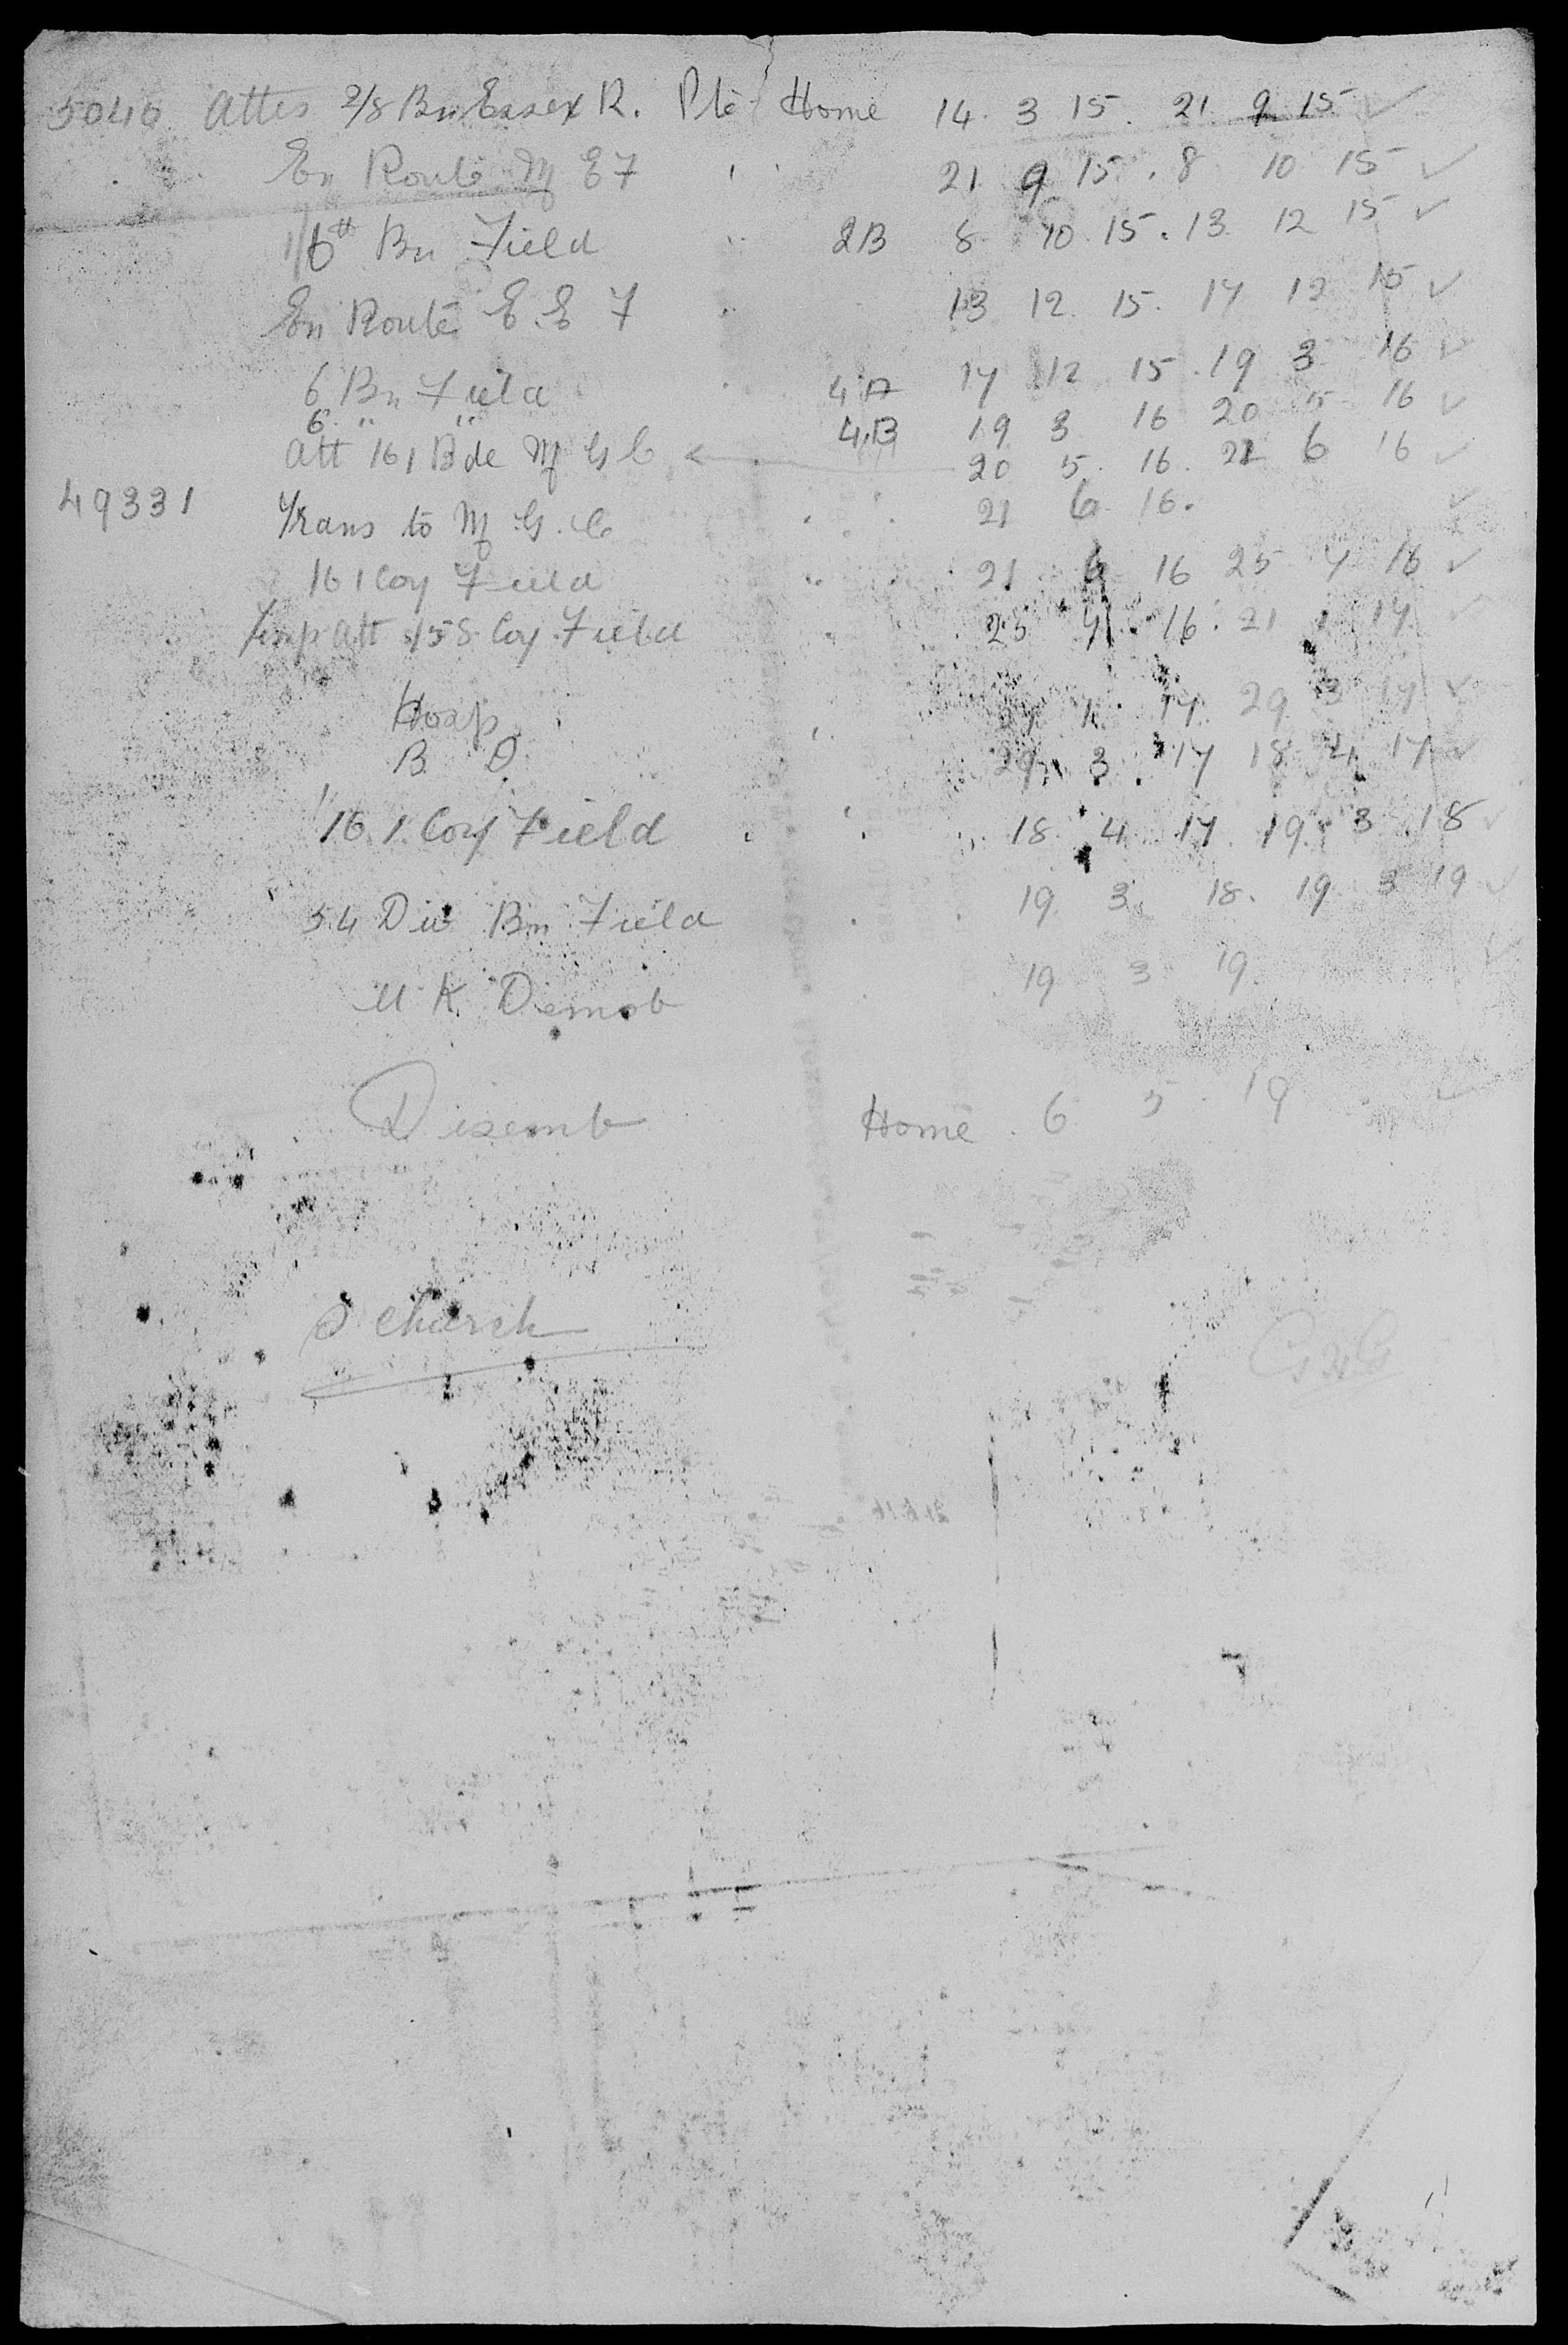 5046 Attes 2/8 Bn Essex R. Pte Home 14. 3 15. 21. 9 15 ✓
En Route M E F " 21 9 15. 8 10 15 ✓
1/6th Bn Field " 2B 8 10 15. 13. 12 15 ✓
En Route E. E F " 13 12 15. 17 12 15 ✓
6 Bn Field 4A 17 12 15. 19 3 16 ✓
6 " " 4B 19 3 16 20 5 16 ✓
Att 161 Bde M G C 20 5. 16. 21 6 16 ✓
49331 Trans to M. G. C 21 6 16. ✓
161 Coy Field " 21 6 16 25 7 16 ✓
Temp Att 155 Coy. Field " 25 7. 16. 21 1 17 ✓
Hosp " 17. 29 3 17 ✓
B. D. 29 3. 17 18 4 17 ✓
161. Coy Field " " 18 4. 17 19. 3 18 ✓
54 Div Bn Field 19. 3. 18. 19 3 19 ✓
U. K. Demob 19 3 19. ✓
Disemb Home. 6 5. 19 ✓
S Church
21.6.16